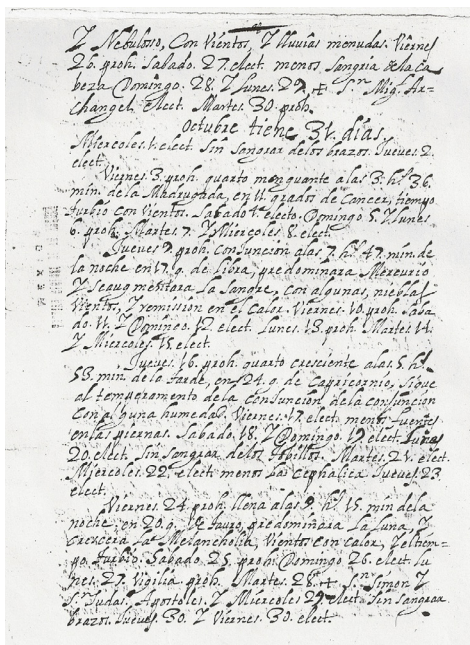 Y Nebuloso, Con Vientos, Y lluvias menudas. Viernes
26. proh. Sabado. 27. elect. menos Sangria de la Ca-
beza Domingo. 28. Y lunes. 29. + S.n Mig. Ar-
changel. elect. Martes. 30. proh.
Octubre tiene 31. días.
Miercoles. 1. elect. Sin Sangrar de los brazos. Jueves 2.
elect.
Viernes 3. proh. quarto menguante a las 3. h.s 36.
min. de la Madrugada, en 11. grados de Cancer, tiempo
turbio con Vientos. Sabado 4. electo. Domingo 5. Y lunes
6. proh. Martes. 7. Y Miercoles 8. elect.
Jueves 9. proh. Conjuncion a las 7. h.s 47. min. de
la noche en 17. g. de libra, predominara Mercurio
Y se augmentara La Sangre, con algunas, nieblas
Vientos, Y remission en el Calor. Viernes. 10. proh. Saba-
do. 11. Y Domingo. 12. elect. Lunes. 13. proh. Martes 14.
Y Miercoles. 15. elect.
Jueves. 16. proh. quarto cresciente a las 5. h.s
53. min. de la tarde, en 24. g. de Capricornio, sigue
al temperamento de la Conjuncion de la conjuncion
con alguna humedad. Viernes. 17. elect. menos fuentes
en las piernas. Sabado. 18. Y Domingo. 19. elect. Lunes
20. elect. Sin Sangrar de los tobillos. Martes. 21. elect.
Miercoles. 22. elect. menos La Cephalica. Jueves 23.
elect.
Viernes 24. proh. llena a las 9. h.s 15. min de la
noche, en 20. g. de tauro, predominara La Luna, Y
Crescera La Melancholia, Vientos con calor, Y el tiem-
po turbio. Sabado. 25. proh. Domingo 26. elect. lu-
nes. 27. Vigilia proh. Martes. 28. + S.n Simon Y
S. Judas, Apostoles, Y Miércoles 29. elect. Sin sangrar
brazos. Jueves. 30. Y Viernes. 30. elect.